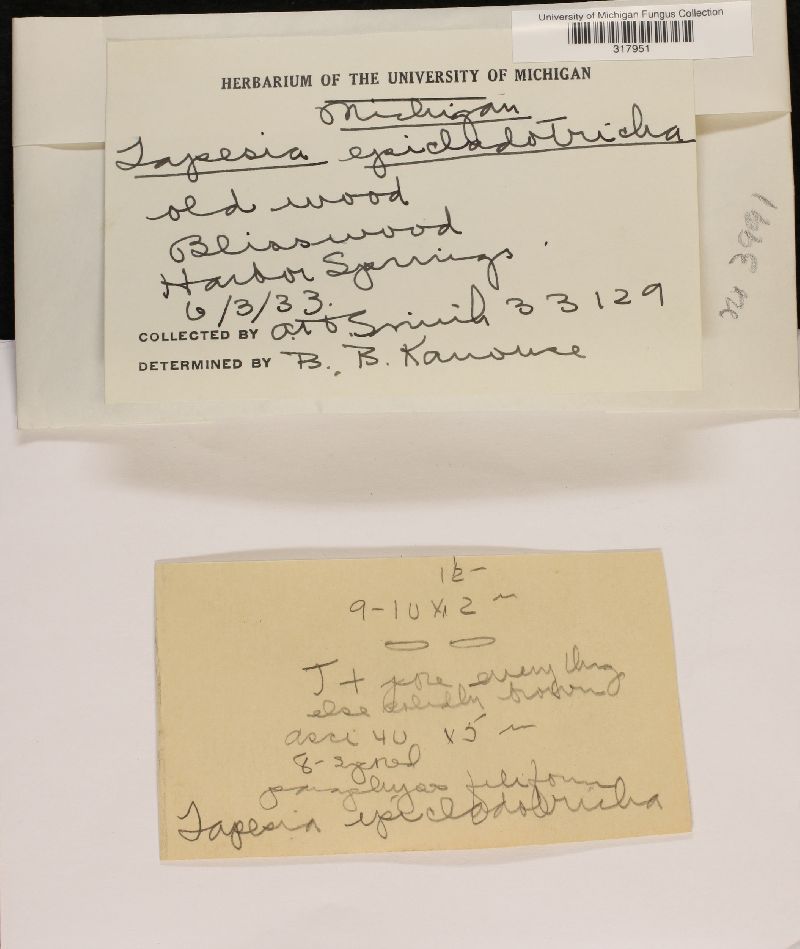 University of Michigan Fungus Collection
317951
HERBARIUM OF THE UNIVERSITY OF MICHIGAN
Michigan
Tapesia epicladotricha
old wood
Blisswood
Harbor Springs
6/3/33.
COLLECTED BY A.H. Smith 33129
DETERMINED BY B. B. Kanouse
No 3991
12-
9-10 x 2
J+ pore everything
else solidly brown
asci 40 x 5
8-spored
paraphyses filiform
Tapesia epicladotricha